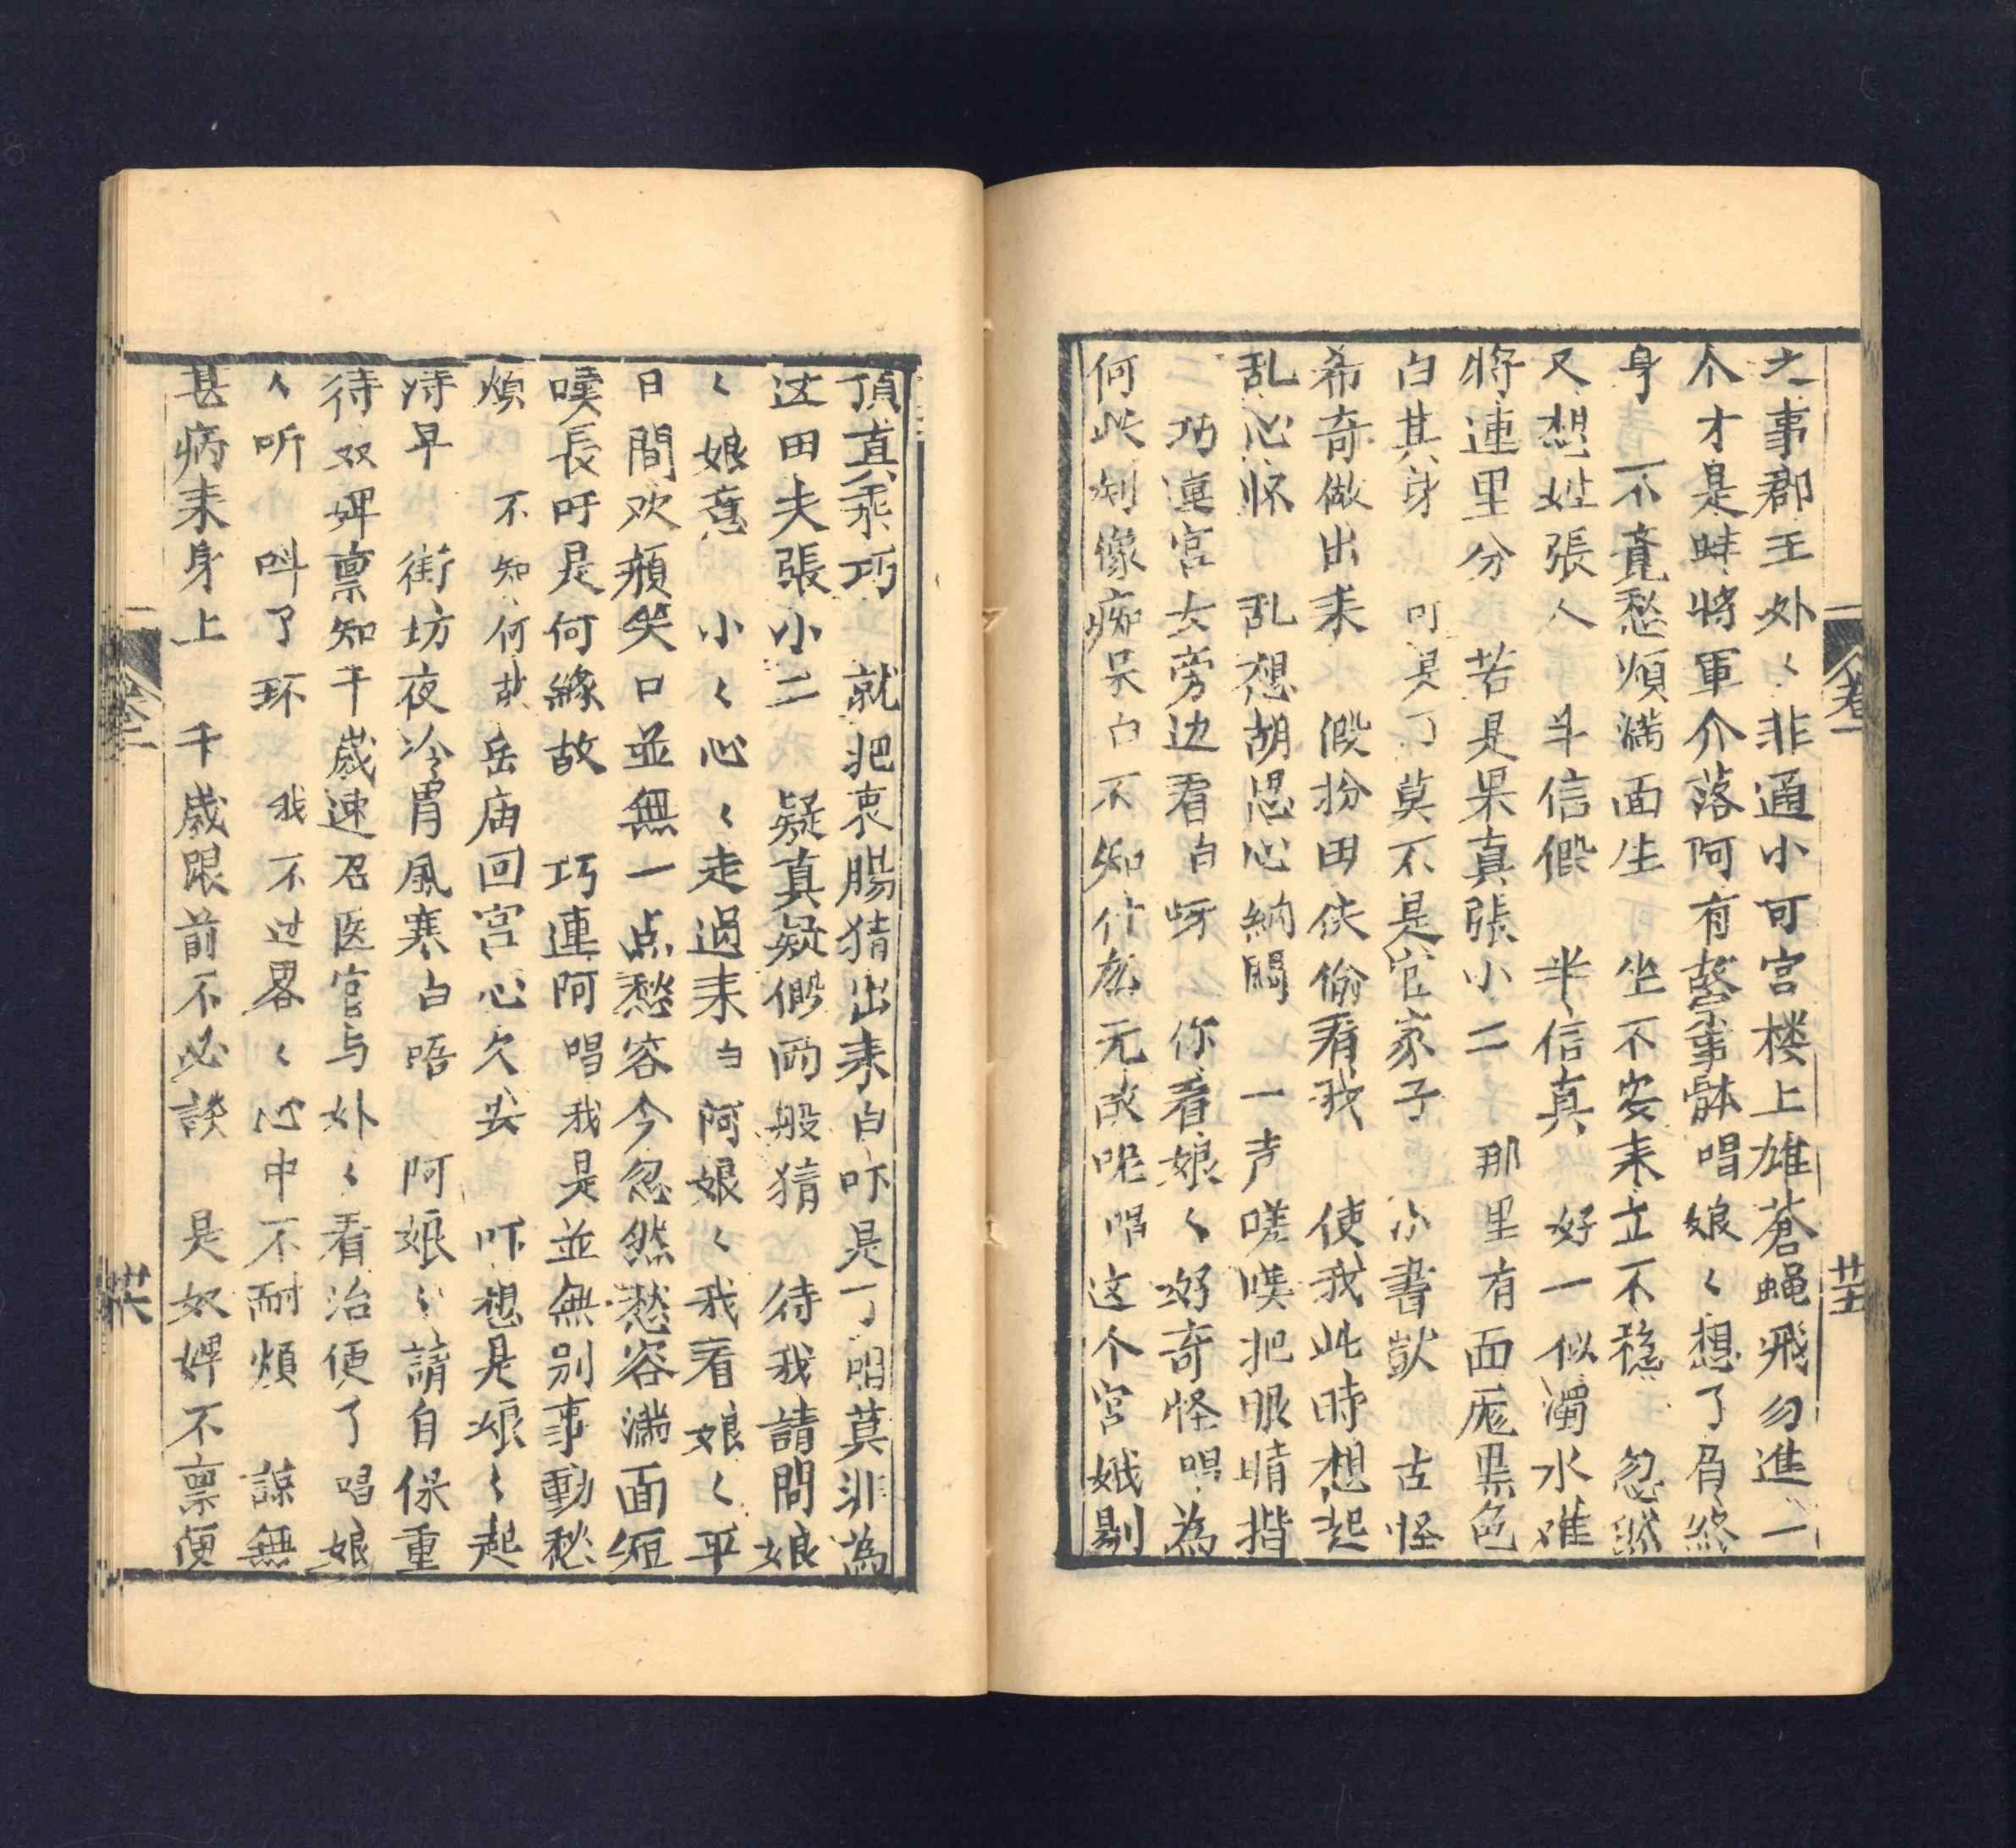 之事郡王外〱非通小可宫楼上雄蒼蝇飛勿進一
个才是蚌將軍介落阿有禁事骵唱娘〱想了肩然
身　不覚愁煩满面生　坐不安耒立不穏　忽然
又想姓張人　半信假　半信真　好一似濁水难
將連里分　若是果真張小二　那里有面厐黒色
白其身　可是了莫不是官家子　小書獃　古怪
希奇做出耒　假扮田伕偷看我　使我此時想起
乱心怀　乱想胡思心納悶　一声嗟嘆把眼晴揩
二　巧連宫女旁边看白呀　你看娘〱好奇怪唱為
何此刻像痴呆白不知什庅元故呢唱这个宫娥剔
頂真乖巧　就把衷腸猜出耒白吓是了唱莫非為
这田夫張小二　疑真疑假两般猜　待我請問娘
〱娘意　小〱心〱走過耒白阿娘〱我看娘〱平
日間欢頻笑口並無一点愁容今忽然愁容满面短
嘆長吁是何緣故　巧連阿唱我是並無别事動愁
煩　不知何故岳庙回宫心欠安　吓想是娘〱起
得早　街坊夜冷冒風寒白唔　阿娘〱請自保重
待双婢禀知千歲速召医官与外〱看治便了唱娘
〱听　呌了环　我不过畧〱心中不耐煩　諒無
甚病耒身上　千歲跟前不必談　是奴婢不禀便
卷二
卷二